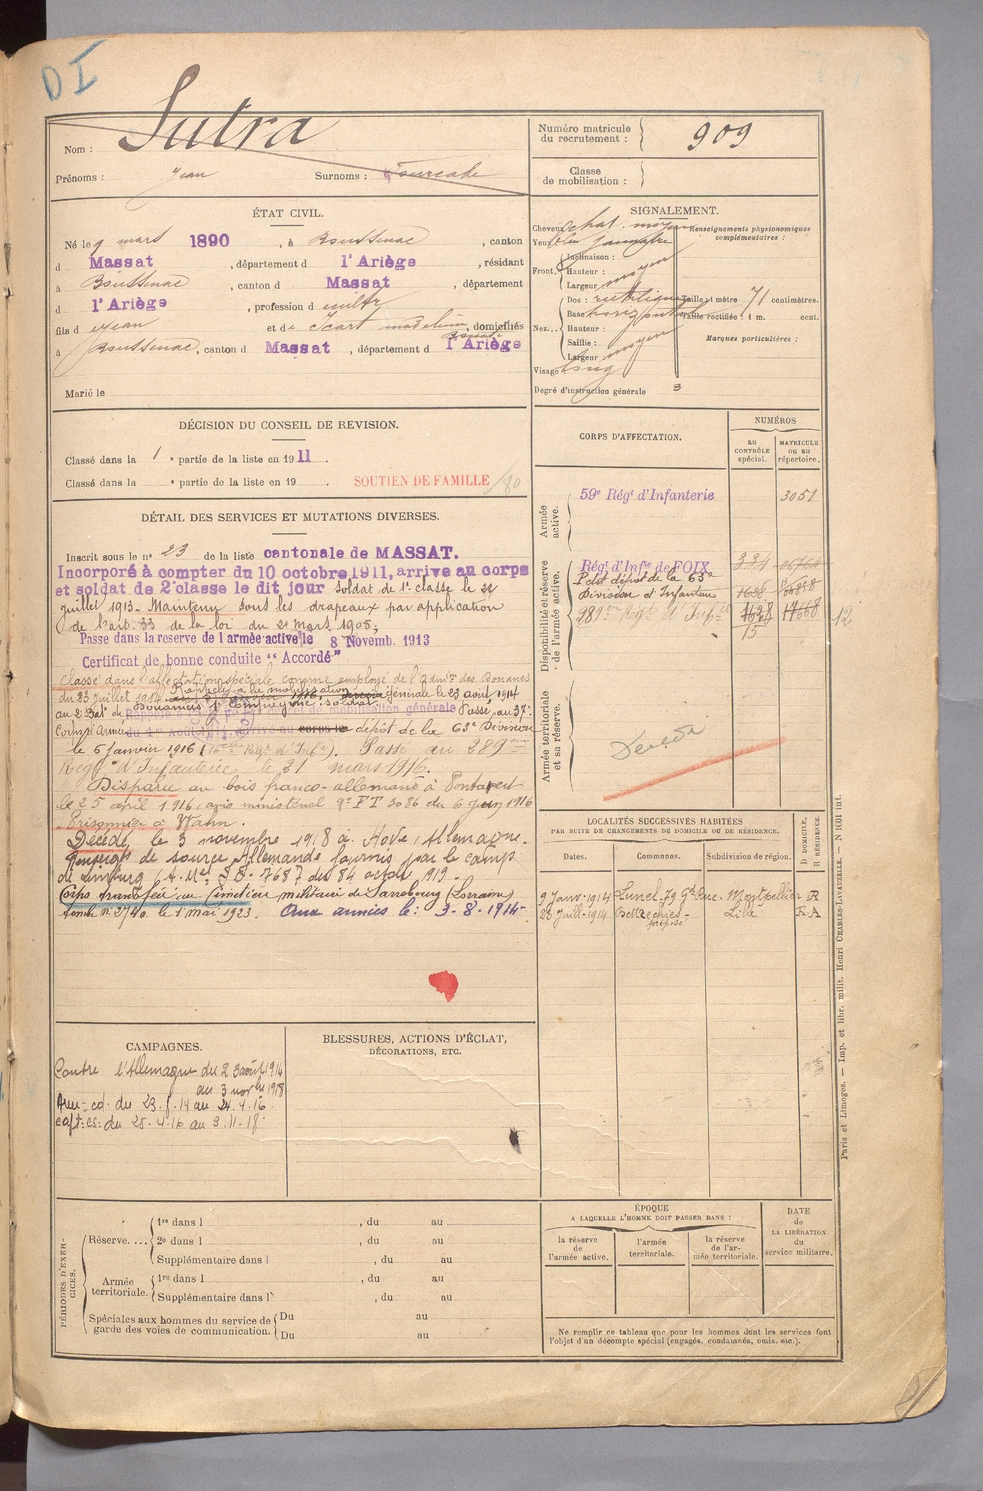 D I
Nom : Sutra
Prénoms : Jean Surnoms : Fourcade
Numéro matricule du recrutement : 909
Classe de mobilisation :
ÉTAT CIVIL.
Né le 9 mars 1890, à Boussenac, canton
d Massat, département d l'Ariège, résidant
à Boussenac, canton d Massat, département
d l'Ariège, profession d cultr
fils d Jean et de Icart madeleine, domiciliés
à Boussenac, canton d Massat, département d l'Ariège
Marié le
SIGNALEMENT.
Cheveux chat. moyen
Yeux bleu jaunâtre
Renseignements physionomiques complémentaires :
Front. Inclinaison :
Hauteur :
Largeur moyen
Nez. Dos : rectiligne
Base horizontale
Hauteur :
Saillie :
Largeur : moyen
Visage long
Taille : 1 mètre 71 centimètres.
Taille rectifiée : 1 m. cent.
Marques particulières :
Degré d'instruction générale 3
DÉCISION DU CONSEIL DE REVISION.
Classé dans la 1e partie de la liste en 1911.
Classé dans la e partie de la liste en 19 .
SOUTIEN DE FAMILLE
DÉTAIL DES SERVICES ET MUTATIONS DIVERSES.
Inscrit sous le n° 23 de la liste cantonale de MASSAT.
Incorporé à compter du 10 octobre 1911, arrive au corps
et soldat de 2e classe le dit jour soldat de 1e classe le 21
juillet 1913. Maintenu sous les drapeaux par application
de l'art. 33 de la loi du 21 mars 1905;
Passe dans la reserve de l'armée active le 8 Novemb. 1913
Certificat de bonne conduite "Accordé"
Classé dans l'affectation spéciale comme employé de l'admon des Douanes
du 23 juillet 1914 Rappelé à la mobilisation générale le 23 août 1914
au 2e Bat. de Douaniers Passé au 37e
Corps d'Armée dépôt de la 65e Division
le 6 janvier 1916 Passé au 289me
Regt d'Infanterie le 21 mars 1916.
Disparu au bois franco-allemand à Pontavert
le 25 avril 1916, avis ministériel n° FT 3086 du 6 juin 1916
Prisonnier à Wahn.
Décédé le 3 novembre 1918 à Allemagne.
Renseigts de source Allemande fournis par le camp
de Limburg
Corps transféré au Cimetière militaire de Sarrebourg (Lorraine)
tombe n° 2740 le 1er mai 1923. Aux armées le: 3-8-1914
CORPS D'AFFECTATION.
NUMÉROS
au CONTRÔLE spécial.
MATRICULE ou au répertoire.
Armée active.
59e Régt d'Infanterie 3051
Disponibilité et réserve de l'armée active.
Régt d'Infie de FOIX 334
Petit dépôt de la 65e
Division d'Infanterie
289me Regt d'Infie 1628 17668
15
12
Armée territoriale et sa réserve.
Décédé
LOCALITÉS SUCCESSIVES HABITÉES
PAR SUITE DE CHANGEMENTS DE DOMICILE OU DE RÉSIDENCE.
Dates. Communes. Subdivision de région. D DOMICILE, R RÉSIDENCE.
9 Janv. 1914 Lunel 79 Gde Rue Montpellier R
28 Juil. 1914 Lille R.A
CAMPAGNES.
Contre l'Allemagne du 23 août 1914
au 3 nov bre 1918
Arm-cd. du 23.8.14 au 24.4.16.
capt: es: du 25.4.16 au 3.11.18
BLESSURES, ACTIONS D'ÉCLAT,
DÉCORATIONS, ETC.
PÉRIODES D'EXERCICES.
Réserve.... 1re dans l , du au
2e dans l , du au
Supplémentaire dans l , du au
Armée territoriale. 1re dans l , du au
Supplémentaire dans l' , du au
Spéciales aux hommes du service de garde des voies de communication. Du au
Du au
ÉPOQUE
A LAQUELLE L'HOMME DOIT PASSER DANS :
la réserve de l'armée active.
l'armée territoriale.
la réserve de l'armée territoriale.
DATE de LA LIBÉRATION du service militaire.
Ne remplir ce tableau que pour les hommes dont les services font
l'objet d'un décompte spécial (engagés, condamnés, omis, etc.).
Paris et Limoges. — Imp. et libr. milit. Henri CHARLES-LAVAUZELLE. — N 1601 int.